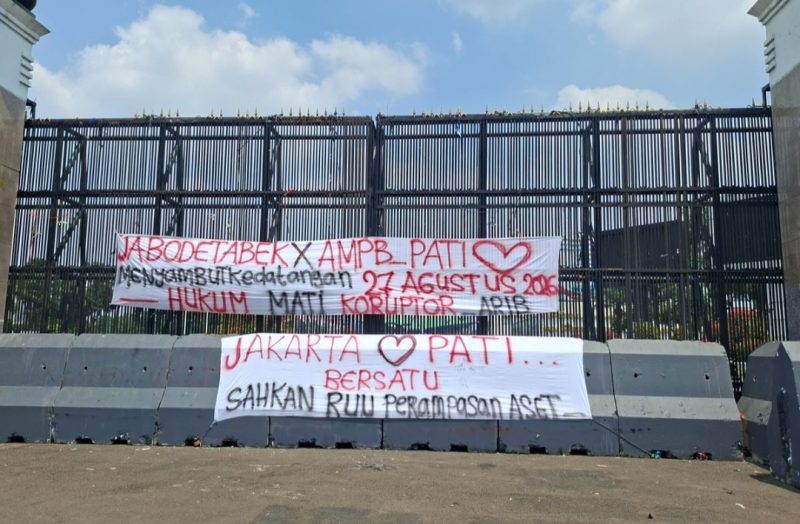 JABODETABEK X AMPB_PATI
MENYAMBUT Kedatangan 27 AGUSTUS 2026
— HUKUM MATI KORUPTOR ARIB
JAKARTA PATI...
BERSATU
SAHKAN RUU PERAMPASAN ASET_